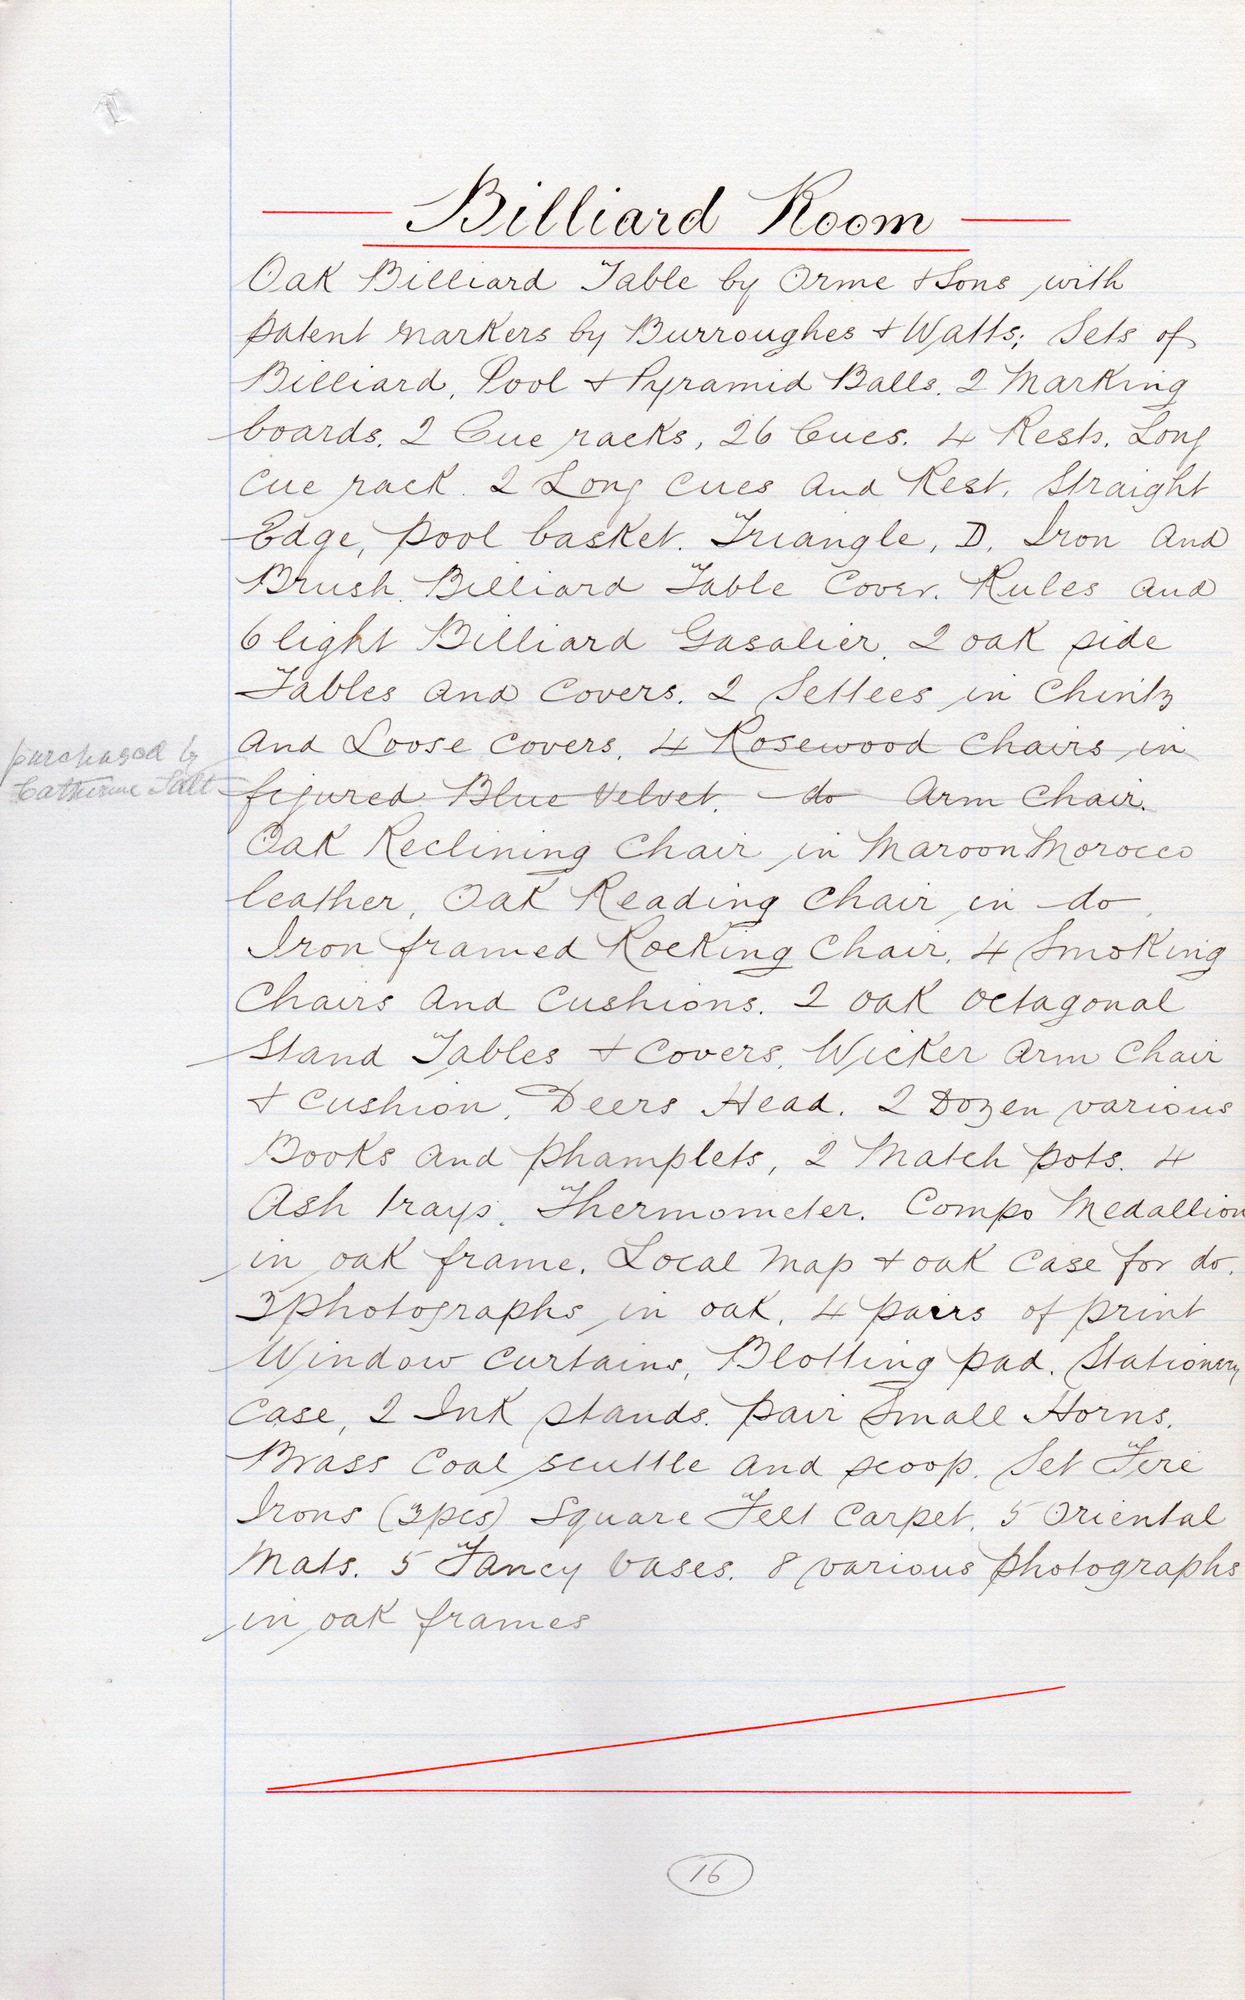 Billiard Room
Oak Billiard Table by Orme & Sons with
patent markers by Burroughes & Watts; Sets of
Billiard, Pool & Pyramid Balls. 2 Marking
boards. 2 Cue racks, 26 Cues. 4 Rests. Long
cue rack. 2 Long cues and Rest. Straight
Edge, pool basket. Triangle, D. Iron and
Brush. Billiard Table Cover. Rules and
6 light Billiard Gasalier. 2 oak side
Tables and covers. 2 Settees in Chintz
and Loose covers. 4 Rosewood Chairs in
purchased by
Catherine Salt
figured Blue Velvet. do Arm Chair.
Oak Reclining Chair in Maroon Morocco
leather, Oak Reading Chair in do.
Iron framed Rocking Chair. 4 Smoking
Chairs and Cushions. 2 oak octagonal
Stand Tables & Covers. Wicker Arm Chair
& Cushion. Deers Head. 2 Dozen various
Books and phamplets, 2 Match pots. 4
Ash trays. Thermometer. Compo Medallion
in oak frame. Local Map & oak case for do.
3 photographs in oak. 4 pairs of print
Window curtains, Blotting pad. Stationery
case, 2 Ink stands. pair Small Horns.
Brass Coal scuttle and scoop. Set Fire
Irons (3 pcs) Square Felt Carpet. 5 Oriental
Mats. 5 Fancy Vases. 8 various photographs
in oak frames
16